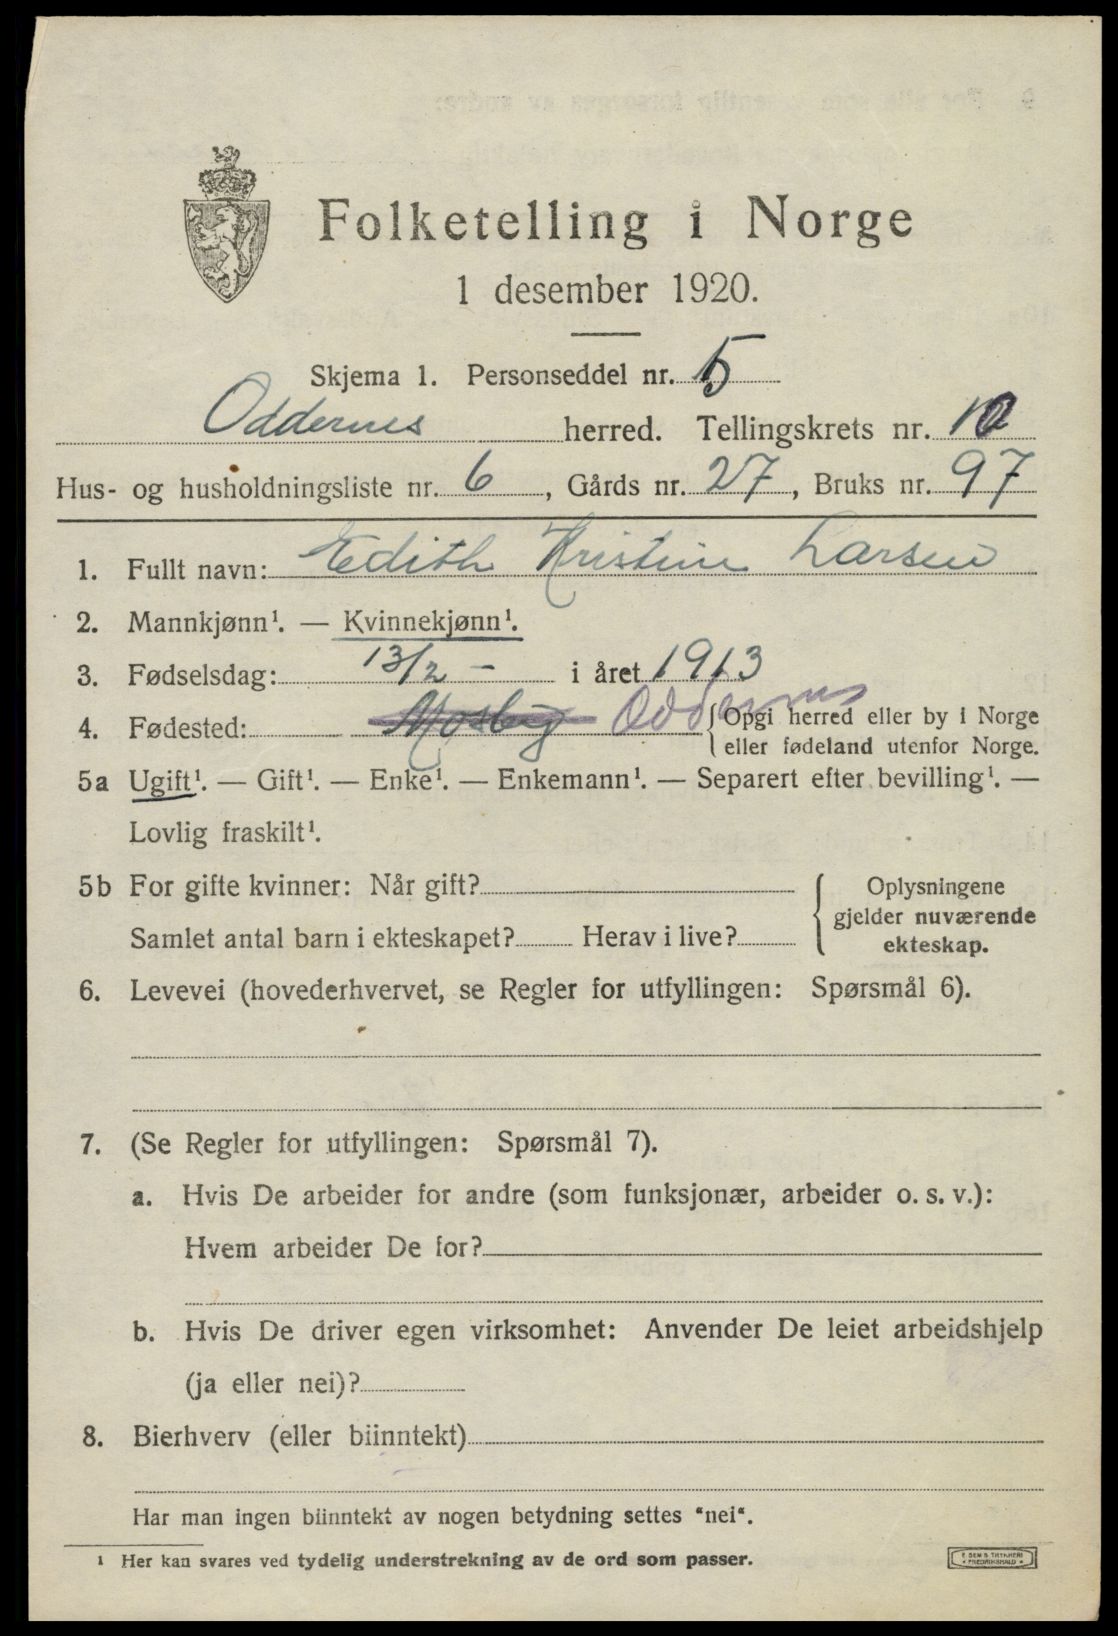 Folketelling i Norge
1 desember 1920.
Skjema 1. Personseddel nr. 5
Oddernes herred. Tellingskrets nr. 10
Hus- og husholdningsliste nr. 6, Gårds nr. 27, Bruks nr. 97
1. Fullt navn: Edith Kristine Larsen
2. Mannkjønn¹. — Kvinnekjønn¹.
3. Fødselsdag: 13/2 - i året 1913
4. Fødested: Mosby Oddernes {Opgi herred eller by i Norge
eller fødeland utenfor Norge.
5a Ugift¹. — Gift¹. — Enke¹. — Enkemann¹. — Separert efter bevilling¹. —
Lovlig fraskilt¹.
5b For gifte kvinner: Når gift? { Oplysningene
gjelder nuværende
Samlet antal barn i ekteskapet? Herav i live? ekteskap.
6. Levevei (hovederhvervet, se Regler for utfyllingen: Spørsmål 6).
7. (Se Regler for utfyllingen: Spørsmål 7).
a. Hvis De arbeider for andre (som funksjonær, arbeider o. s. v.):
Hvem arbeider De for?
b. Hvis De driver egen virksomhet: Anvender De leiet arbeidshjelp
(ja eller nei)?
8. Bierhverv (eller biinntekt)
Har man ingen biinntekt av nogen betydning settes "nei".
¹ Her kan svares ved tydelig understrekning av de ord som passer.
E. SEM'S TRYKKERI
FREDRIKSHALD